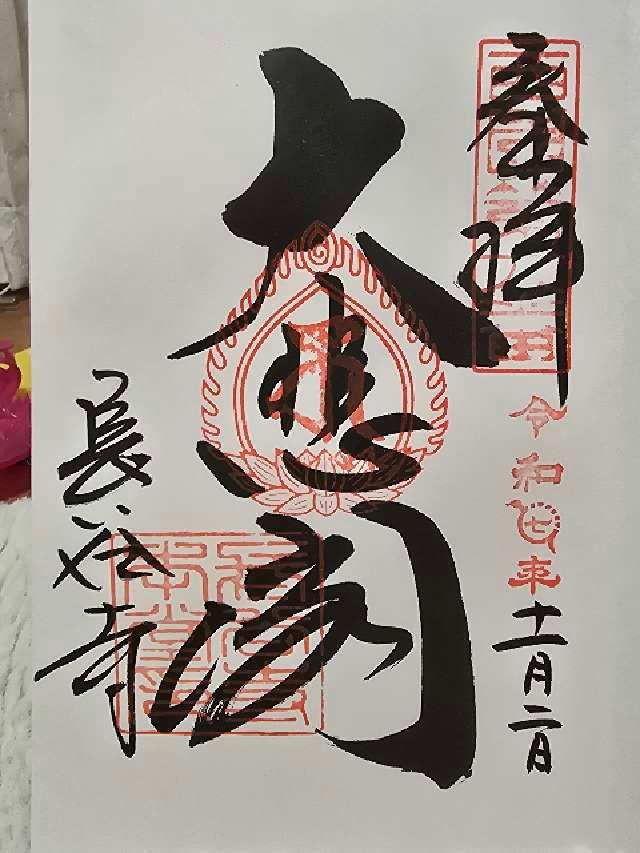 奉拝
令和七年
十一月二日
大悲閣
長谷寺